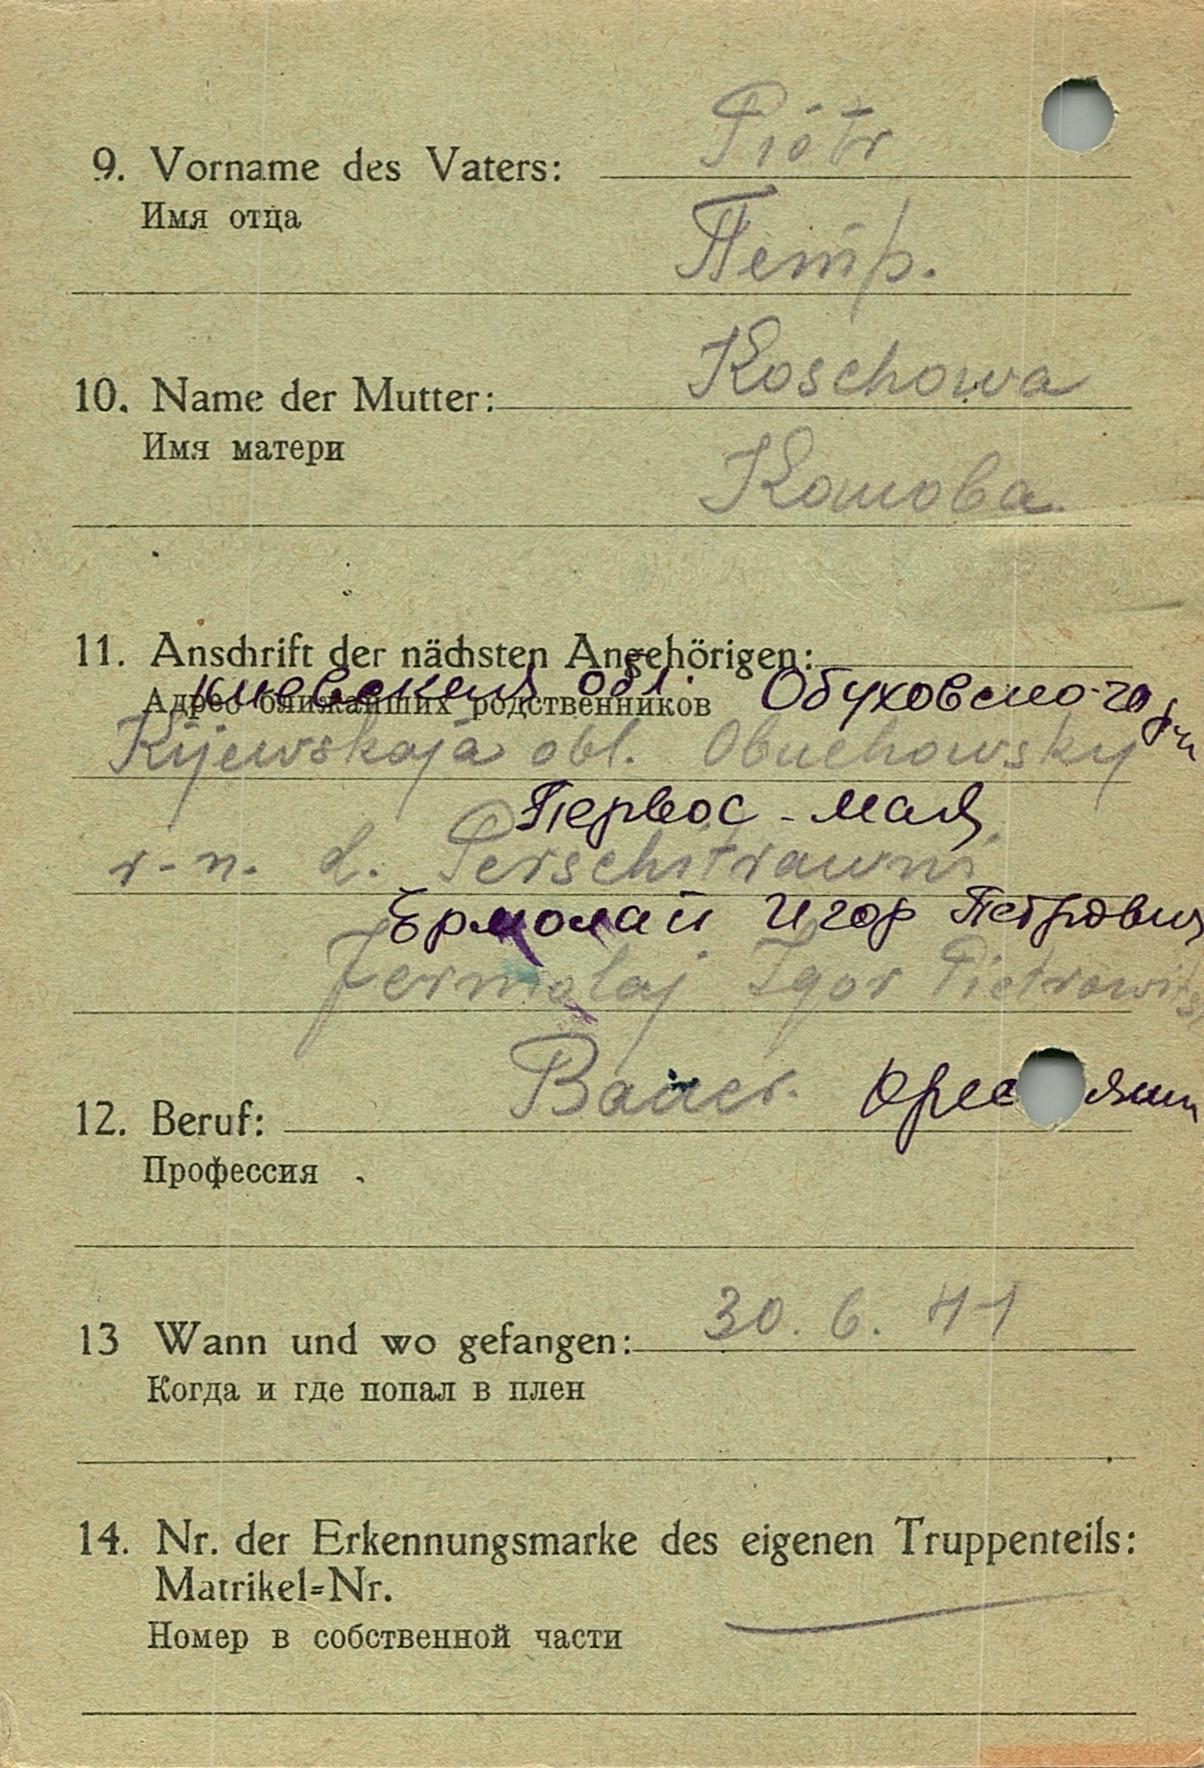 Piótr
9. Vorname des Vaters:
Имя отца
Петр.
Koschowa
10. Name der Mutter:
Имя матери
Кошова
11. Anschrift der nächsten Angehörigen:
Киевская обл. Обуховского
Адрес ближайших родственников
Kijewskaja obl. Obuchowsky
Первос - мая
r-n. d. Perschitrawni
Ермолай Игор Петрович
Jermolaj Igor Pietrowitsch
Bauer.
12. Beruf:
Профессия
30. 6. 41
13 Wann und wo gefangen:
Когда и где попал в плен
14. Nr. der Erkennungsmarke des eigenen Truppenteils:
Matrikel=Nr.
Номер в собственной части